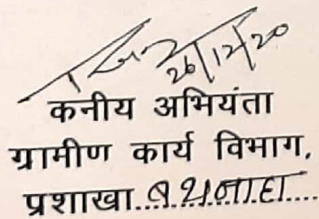 26/12/20
कनीय अभियंता
ग्रामीण कार्य विभाग,
प्रशाखा...बथनाहा...